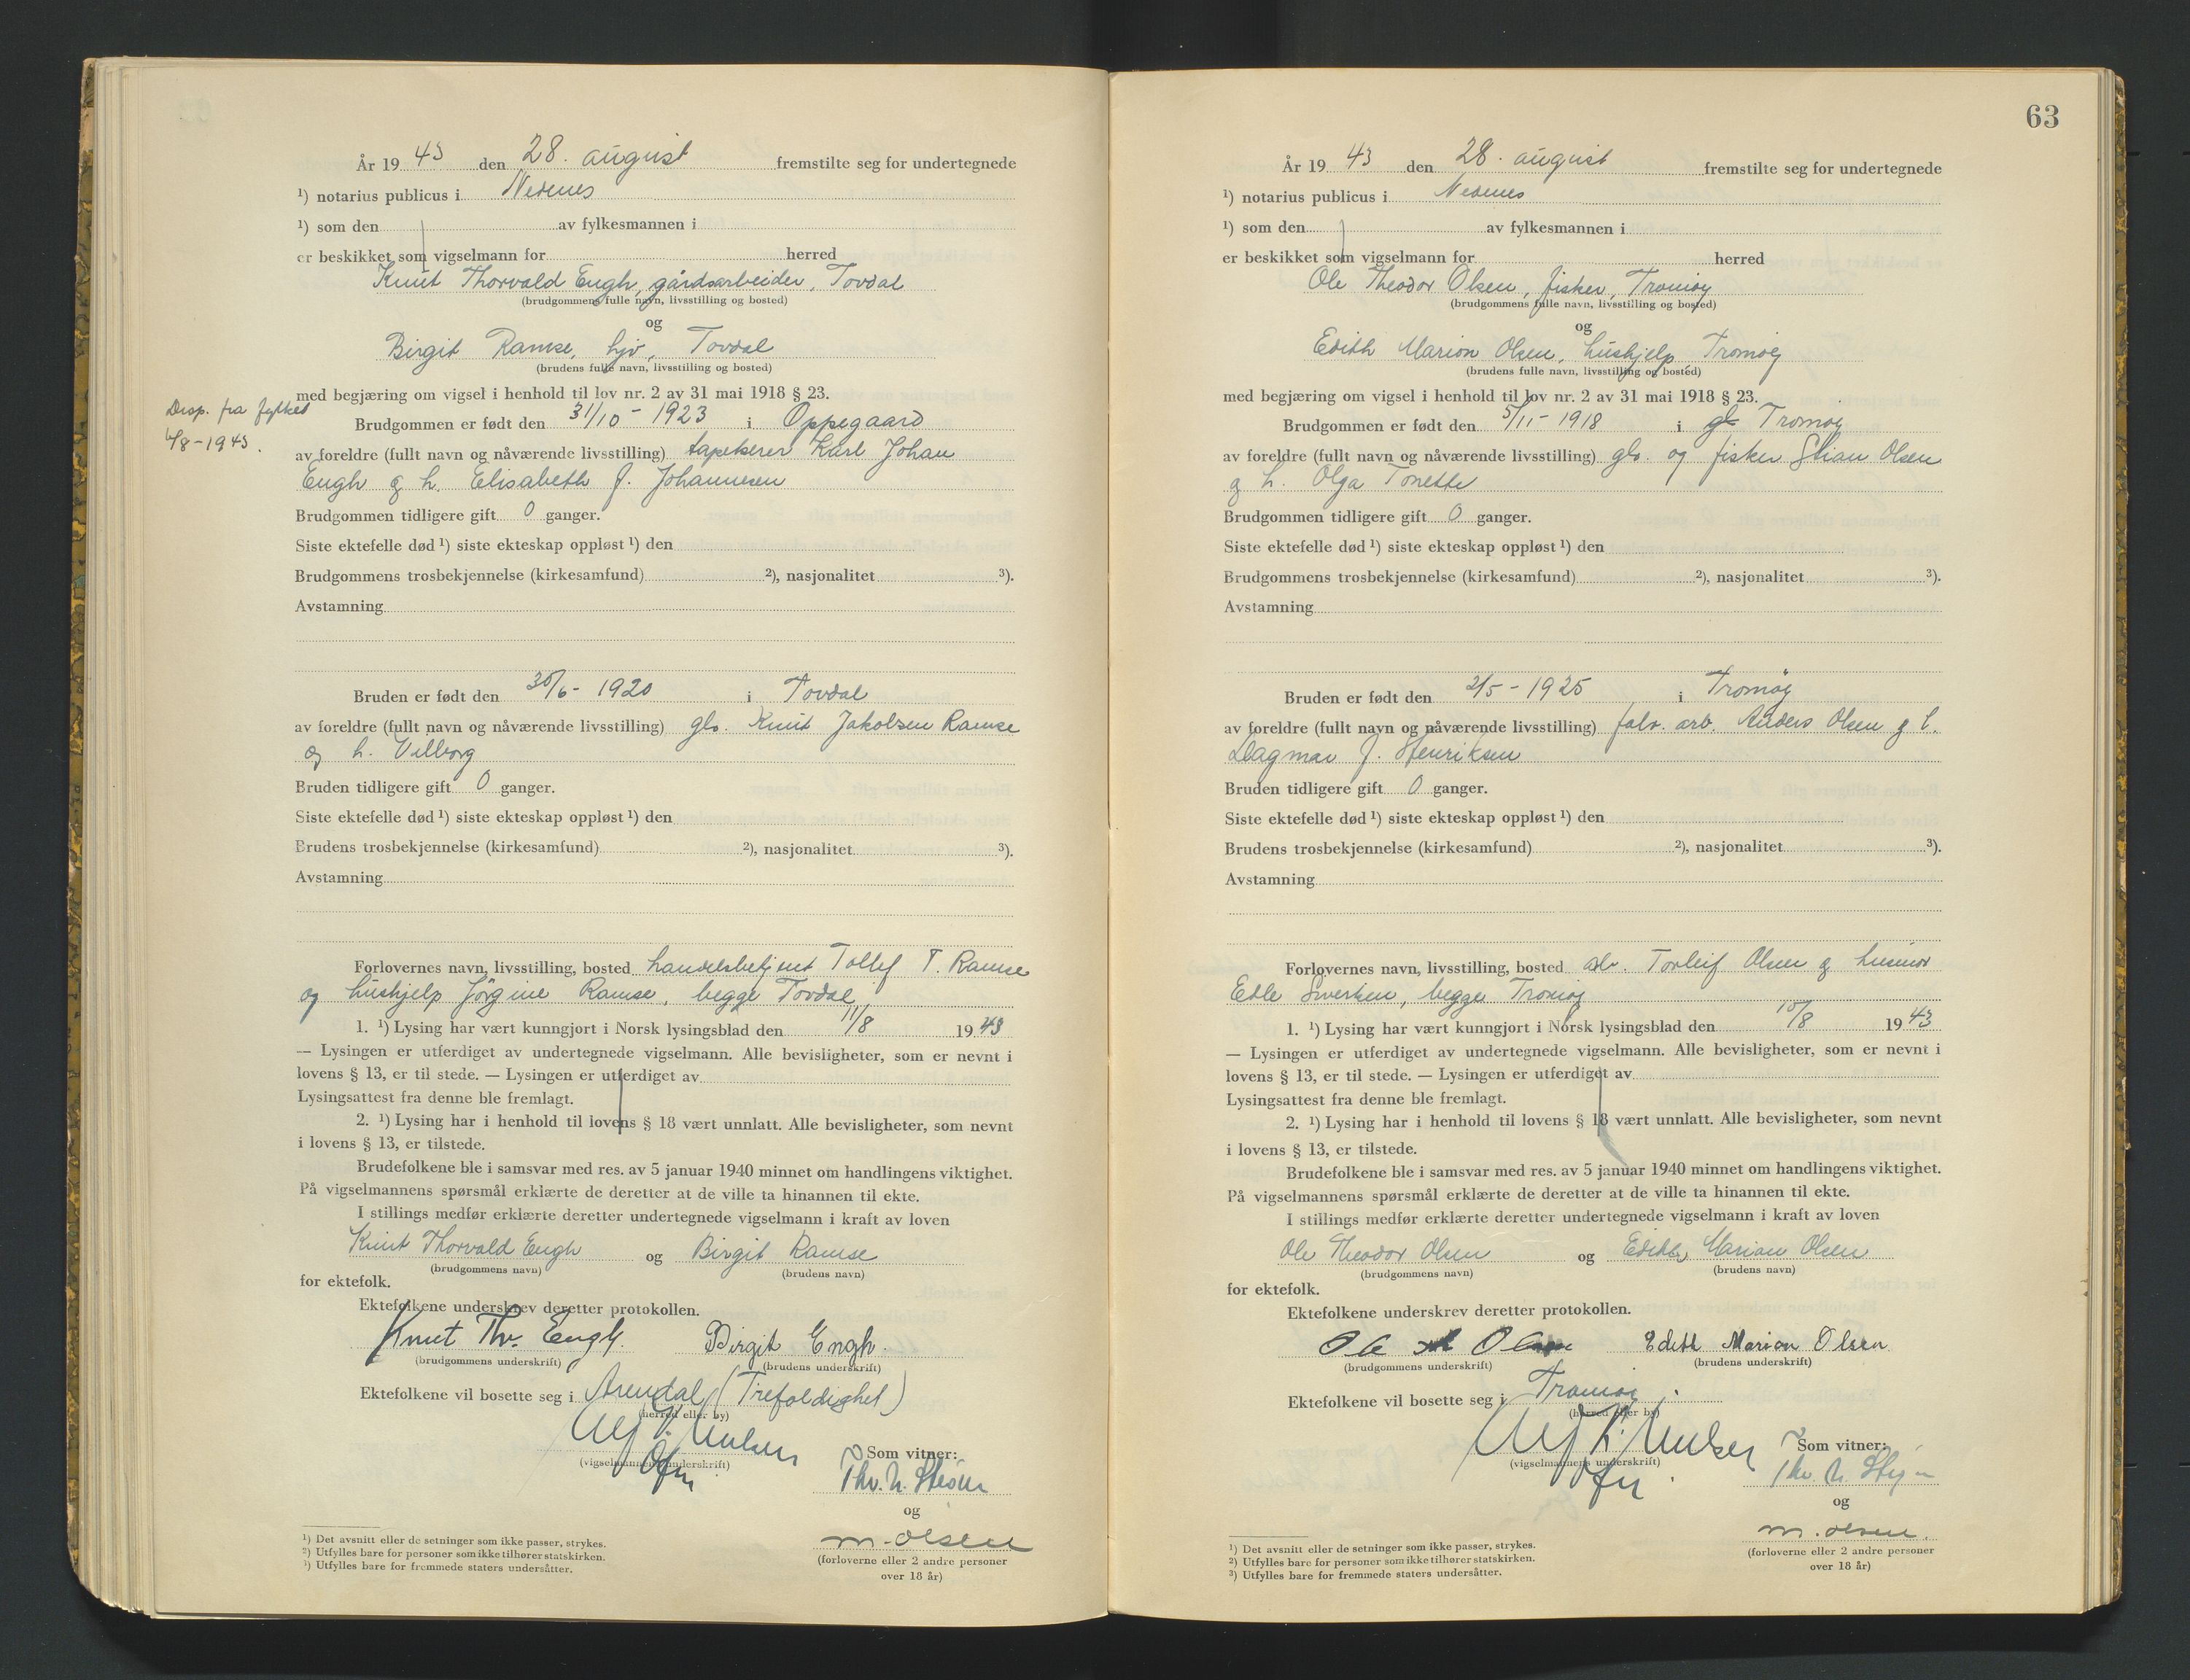 År 1943 den 28. august fremstilte seg for undertegnede
¹) notarius publicus i Nedenes
¹) som den av fylkesmannen i
er beskikket som vigselmann for herred
Knut Thorvald Engh, gårdsarbeider, Tovdal
(brudgommens fulle navn, livsstilling og bosted)
og
Birgit Ramse, hjv, Tovdal
(brudens fulle navn, livsstilling og bosted)
med begjæring om vigsel i henhold til lov nr. 2 av 31 mai 1918 § 23.
Disp. fra fylket
/8-1943.
Brudgommen er født den 31/10-1923 i Oppegaard
av foreldre (fullt navn og nåværende livsstilling) tapetserer Karl Johan
Engh og h. Elisabeth f. Johannesen
Brudgommen tidligere gift 0 ganger.
Siste ektefelle død ¹) siste ekteskap oppløst ¹) den
Brudgommens trosbekjennelse (kirkesamfund) ²), nasjonalitet ³).
Avstamning
Bruden er født den 30/6-1920 i Tovdal
av foreldre (fullt navn og nåværende livsstilling) gbr. Knut Jakobsen Ramse
og h. Vilborg
Bruden tidligere gift 0 ganger.
Siste ektefelle død ¹) siste ekteskap oppløst ¹) den
Brudens trosbekjennelse (kirkesamfund) ²), nasjonalitet ³).
Avstamning
Forlovernes navn, livsstilling, bosted handelsbetjent Tollef T. Ramse
og hushjelp Jørgine Ramse, begge Tovdal,
1. ¹) Lysing har vært kunngjort i Norsk lysingsblad den 11/8 1943
— Lysingen er utferdiget av undertegnede vigselmann. Alle bevisligheter, som er nevnt i
lovens § 13, er til stede. — Lysingen er utferdiget av
Lysingsattest fra denne ble fremlagt.
2. ¹) Lysing har i henhold til lovens § 18 vært unnlatt. Alle bevisligheter, som nevnt
i lovens § 13, er tilstede.
Brudefolkene ble i samsvar med res. av 5 januar 1940 minnet om handlingens viktighet.
På vigselmannens spørsmål erklærte de deretter at de ville ta hinannen til ekte.
I stillings medfør erklærte deretter undertegnede vigselmann i kraft av loven
Knut Thorvald Engh og Birgit Ramse
(brudgommens navn) (brudens navn)
for ektefolk.
Ektefolkene underskrev deretter protokollen.
Knut Thv. Engh. Birgit Engh.
(brudgommens underskrift) (brudens underskrift)
Ektefolkene vil bosette seg i Arendal (Trefoldighet)
(herred eller by)
(vigselmannens underskrift)
Som vitner:
Thv. N.
og
M. Olsen
(forloverne eller 2 andre personer
over 18 år)
¹) Det avsnitt eller de setninger som ikke passer, strykes.
²) Utfylles bare for personer som ikke tilhører statskirken.
³) Utfylles bare for fremmede staters undersåtter.
63
År 1943 den 28. august fremstilte seg for undertegnede
¹) notarius publicus i Nedenes
¹) som den av fylkesmannen i
er beskikket som vigselmann for herred
Ole Theodor Olsen, fisker, Tromøy
(brudgommens fulle navn, livsstilling og bosted)
og
Edith Marion Olsen, hushjelp Tromøy
(brudens fulle navn, livsstilling og bosted)
med begjæring om vigsel i henhold til lov nr. 2 av 31 mai 1918 § 23.
Brudgommen er født den 5/11-1918 i Tromøy
av foreldre (fullt navn og nåværende livsstilling) gbr. og fisker Stian Olsen
og h. Olga Tonette
Brudgommen tidligere gift 0 ganger.
Siste ektefelle død ¹) siste ekteskap oppløst ¹) den
Brudgommens trosbekjennelse (kirkesamfund) ²), nasjonalitet ³).
Avstamning
Bruden er født den 2/5-1925 i Tromøy
av foreldre (fullt navn og nåværende livsstilling) fabr. arb. Anders Olsen og h.
Dagmar f. Henriksen
Bruden tidligere gift 0 ganger.
Siste ektefelle død ¹) siste ekteskap oppløst ¹) den
Brudens trosbekjennelse (kirkesamfund) ²), nasjonalitet ³).
Avstamning
Forlovernes navn, livsstilling, bosted arb. Torleif Olsen og husmor
Edle Sivertsen, begge Tromøy
1. ¹) Lysing har vært kunngjort i Norsk lysingsblad den 10/8 1943
— Lysingen er utferdiget av undertegnede vigselmann. Alle bevisligheter, som er nevnt i
lovens § 13, er til stede. — Lysingen er utferdiget av
Lysingsattest fra denne ble fremlagt.
2. ¹) Lysing har i henhold til lovens § 18 vært unnlatt. Alle bevisligheter, som nevnt
i lovens § 13, er tilstede.
Brudefolkene ble i samsvar med res. av 5 januar 1940 minnet om handlingens viktighet.
På vigselmannens spørsmål erklærte de deretter at de ville ta hinannen til ekte.
I stillings medfør erklærte deretter undertegnede vigselmann i kraft av loven
Ole Theodor Olsen og Edith Marion Olsen
(brudgommens navn) (brudens navn)
for ektefolk.
Ektefolkene underskrev deretter protokollen.
Ole Olsen Edith Marion Olsen
(brudgommens underskrift) (brudens underskrift)
Ektefolkene vil bosette seg i Tromøy.
(herred eller by)
(vigselmannens underskrift)
Som vitner:
Thv. N.
og
M. Olsen.
(forloverne eller 2 andre personer
over 18 år)
¹) Det avsnitt eller de setninger som ikke passer, strykes.
²) Utfylles bare for personer som ikke tilhører statskirken.
³) Utfylles bare for fremmede staters undersåtter.